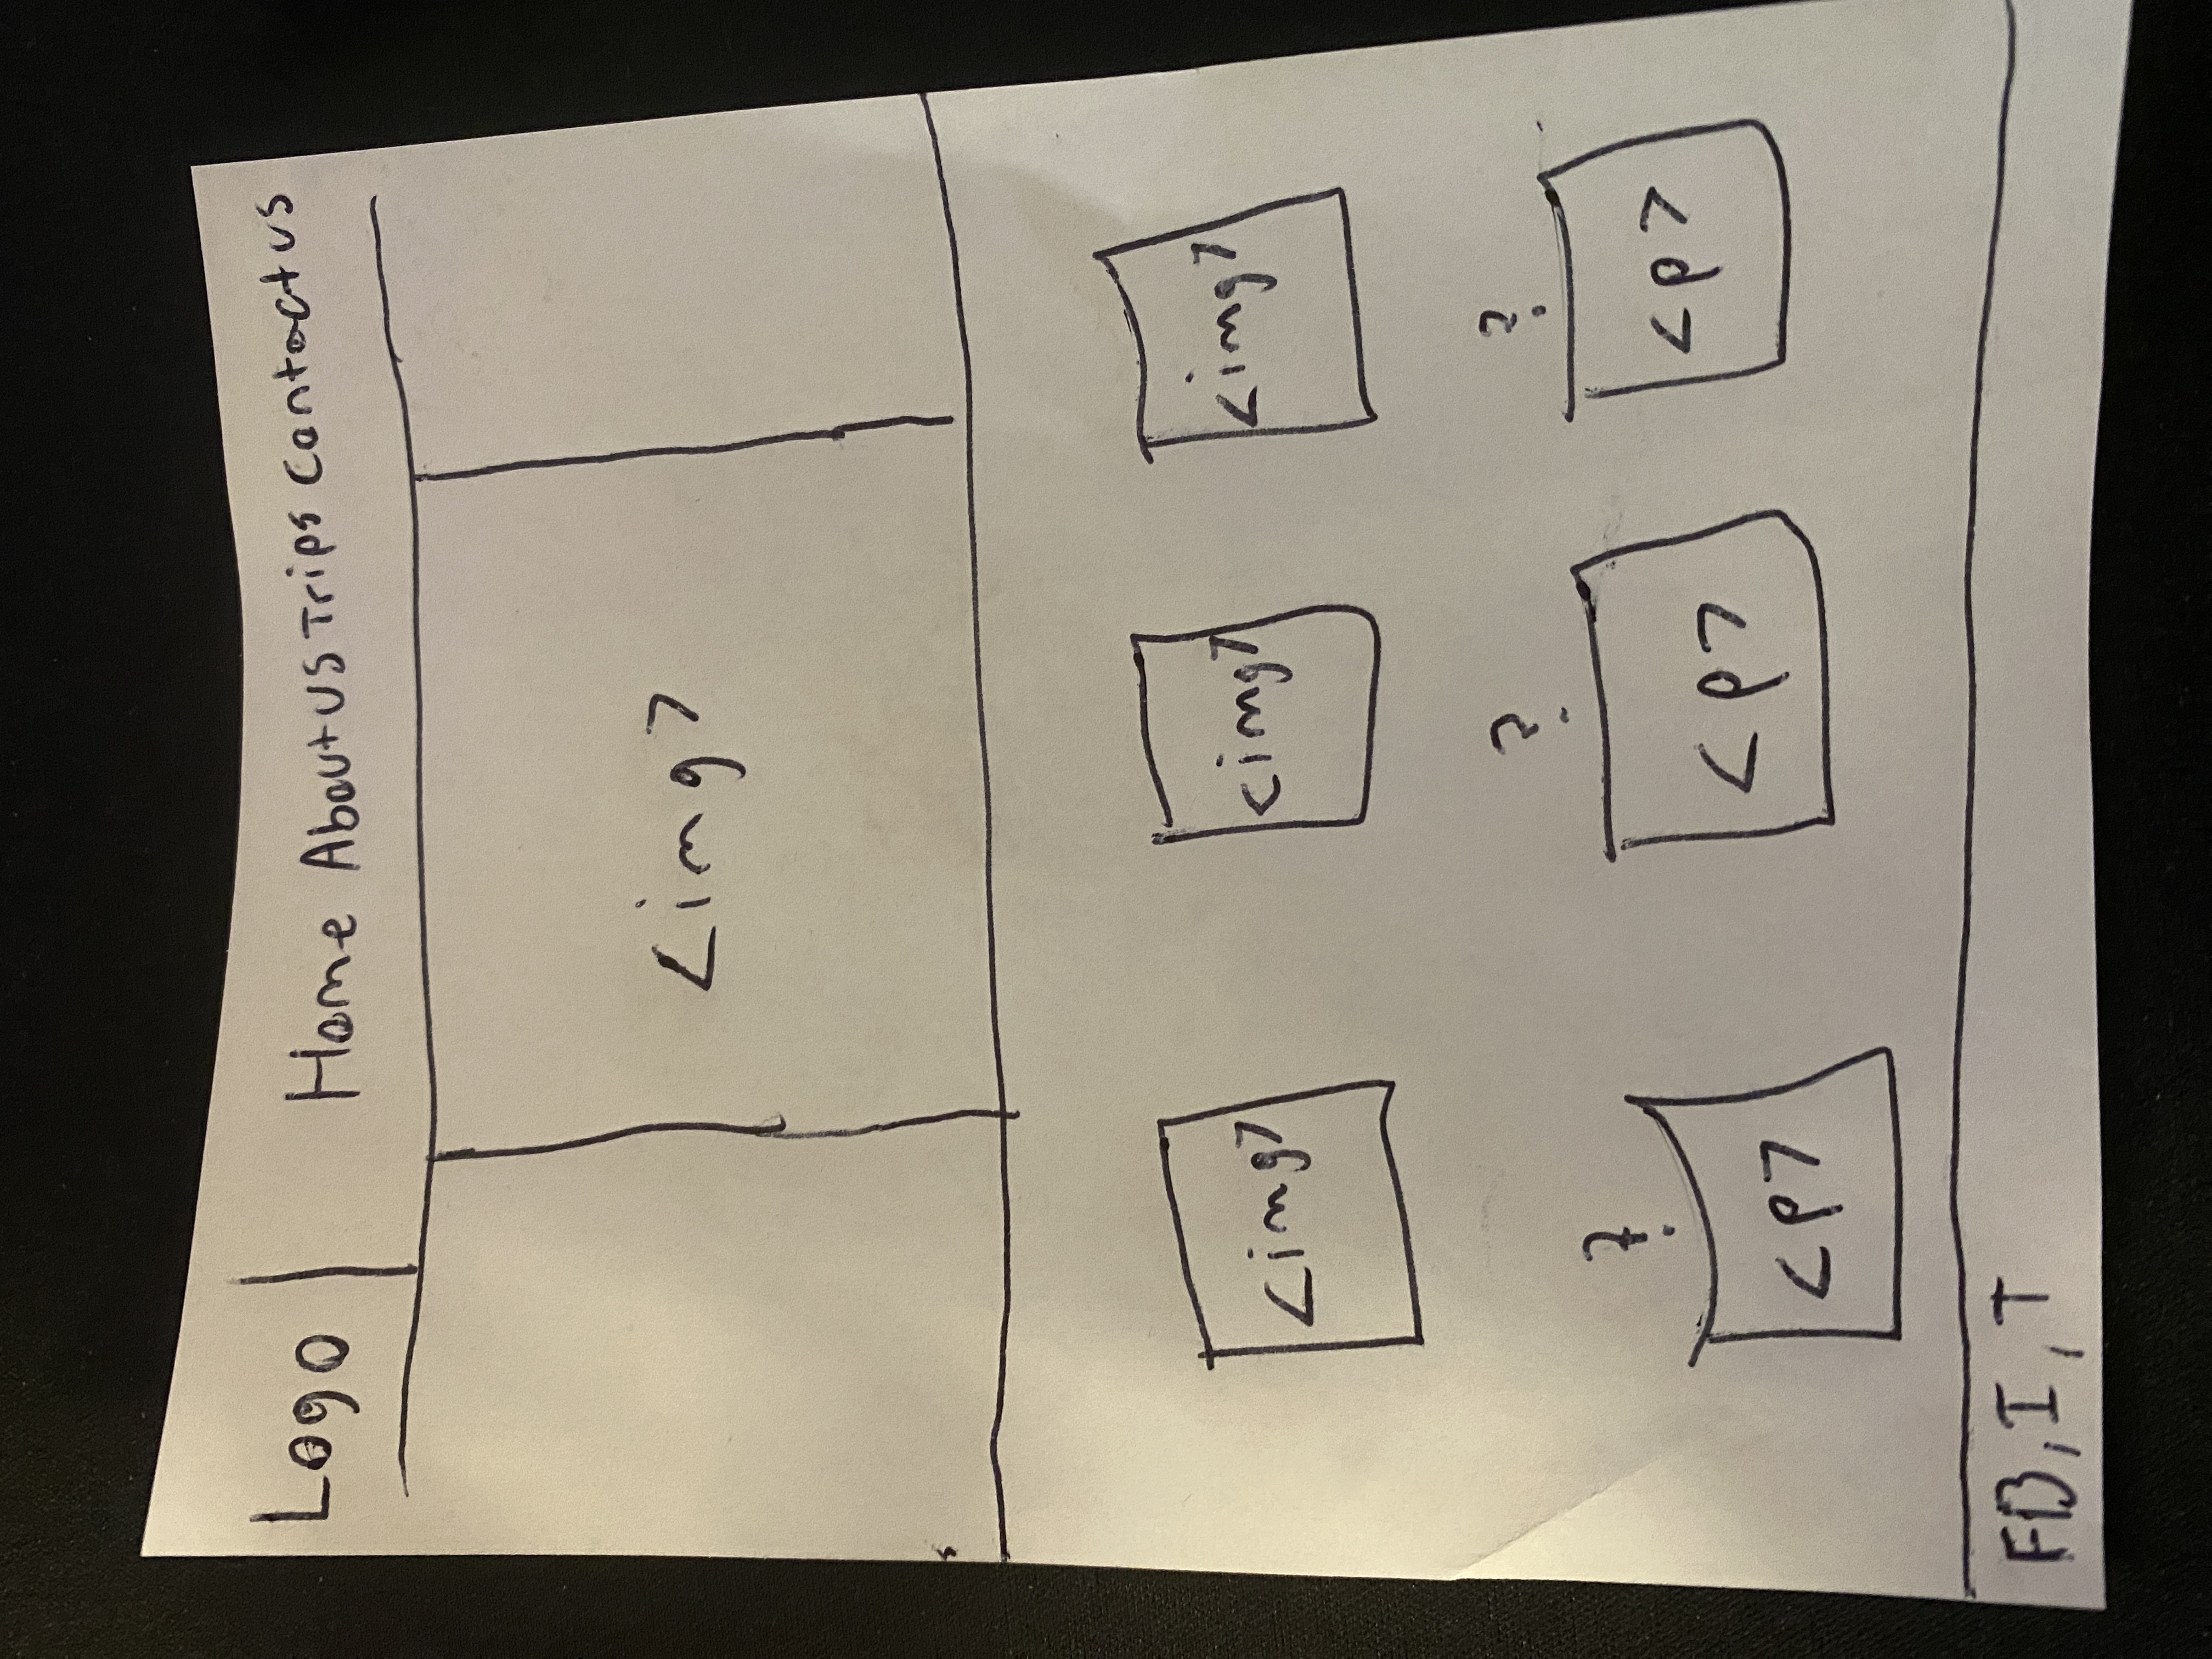 Logo Home About us Trips Contact us
<img>
<img> <img> <img>
? ? ?
<p> <p> <p>
FB, I, T